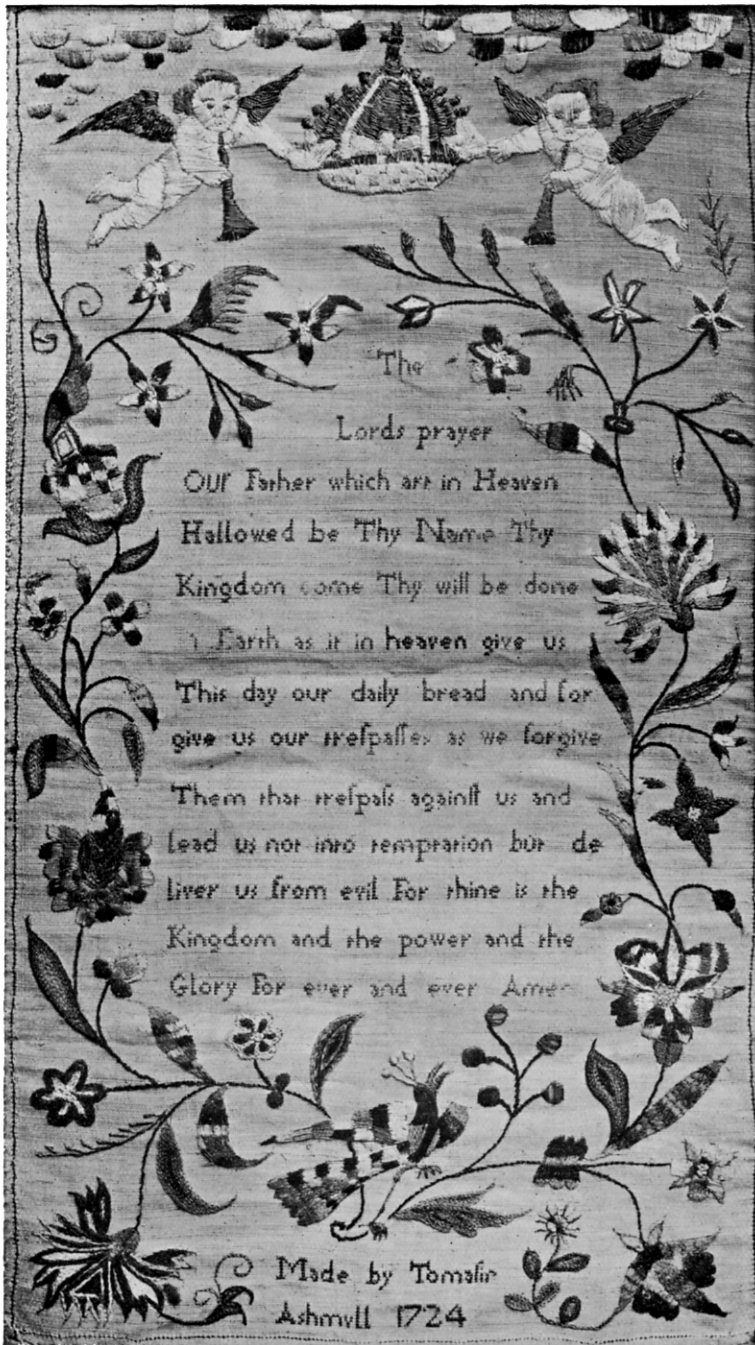 The
Lords prayer
OUr Father which art in Heaven
Hallowed be Thy Name Thy
Kingdom come Thy will be done
Earth as it in heaven give us
This day our daily bread and for
give us our treſpaſſes as we forgive
Them that treſpaſs againſt us and
lead us not into temptation but de
liver us from evil For thine is the
Kingdom and the power and the
Glory For ever and ever Amen
Made by Tomaſin
Ashmvll 1724